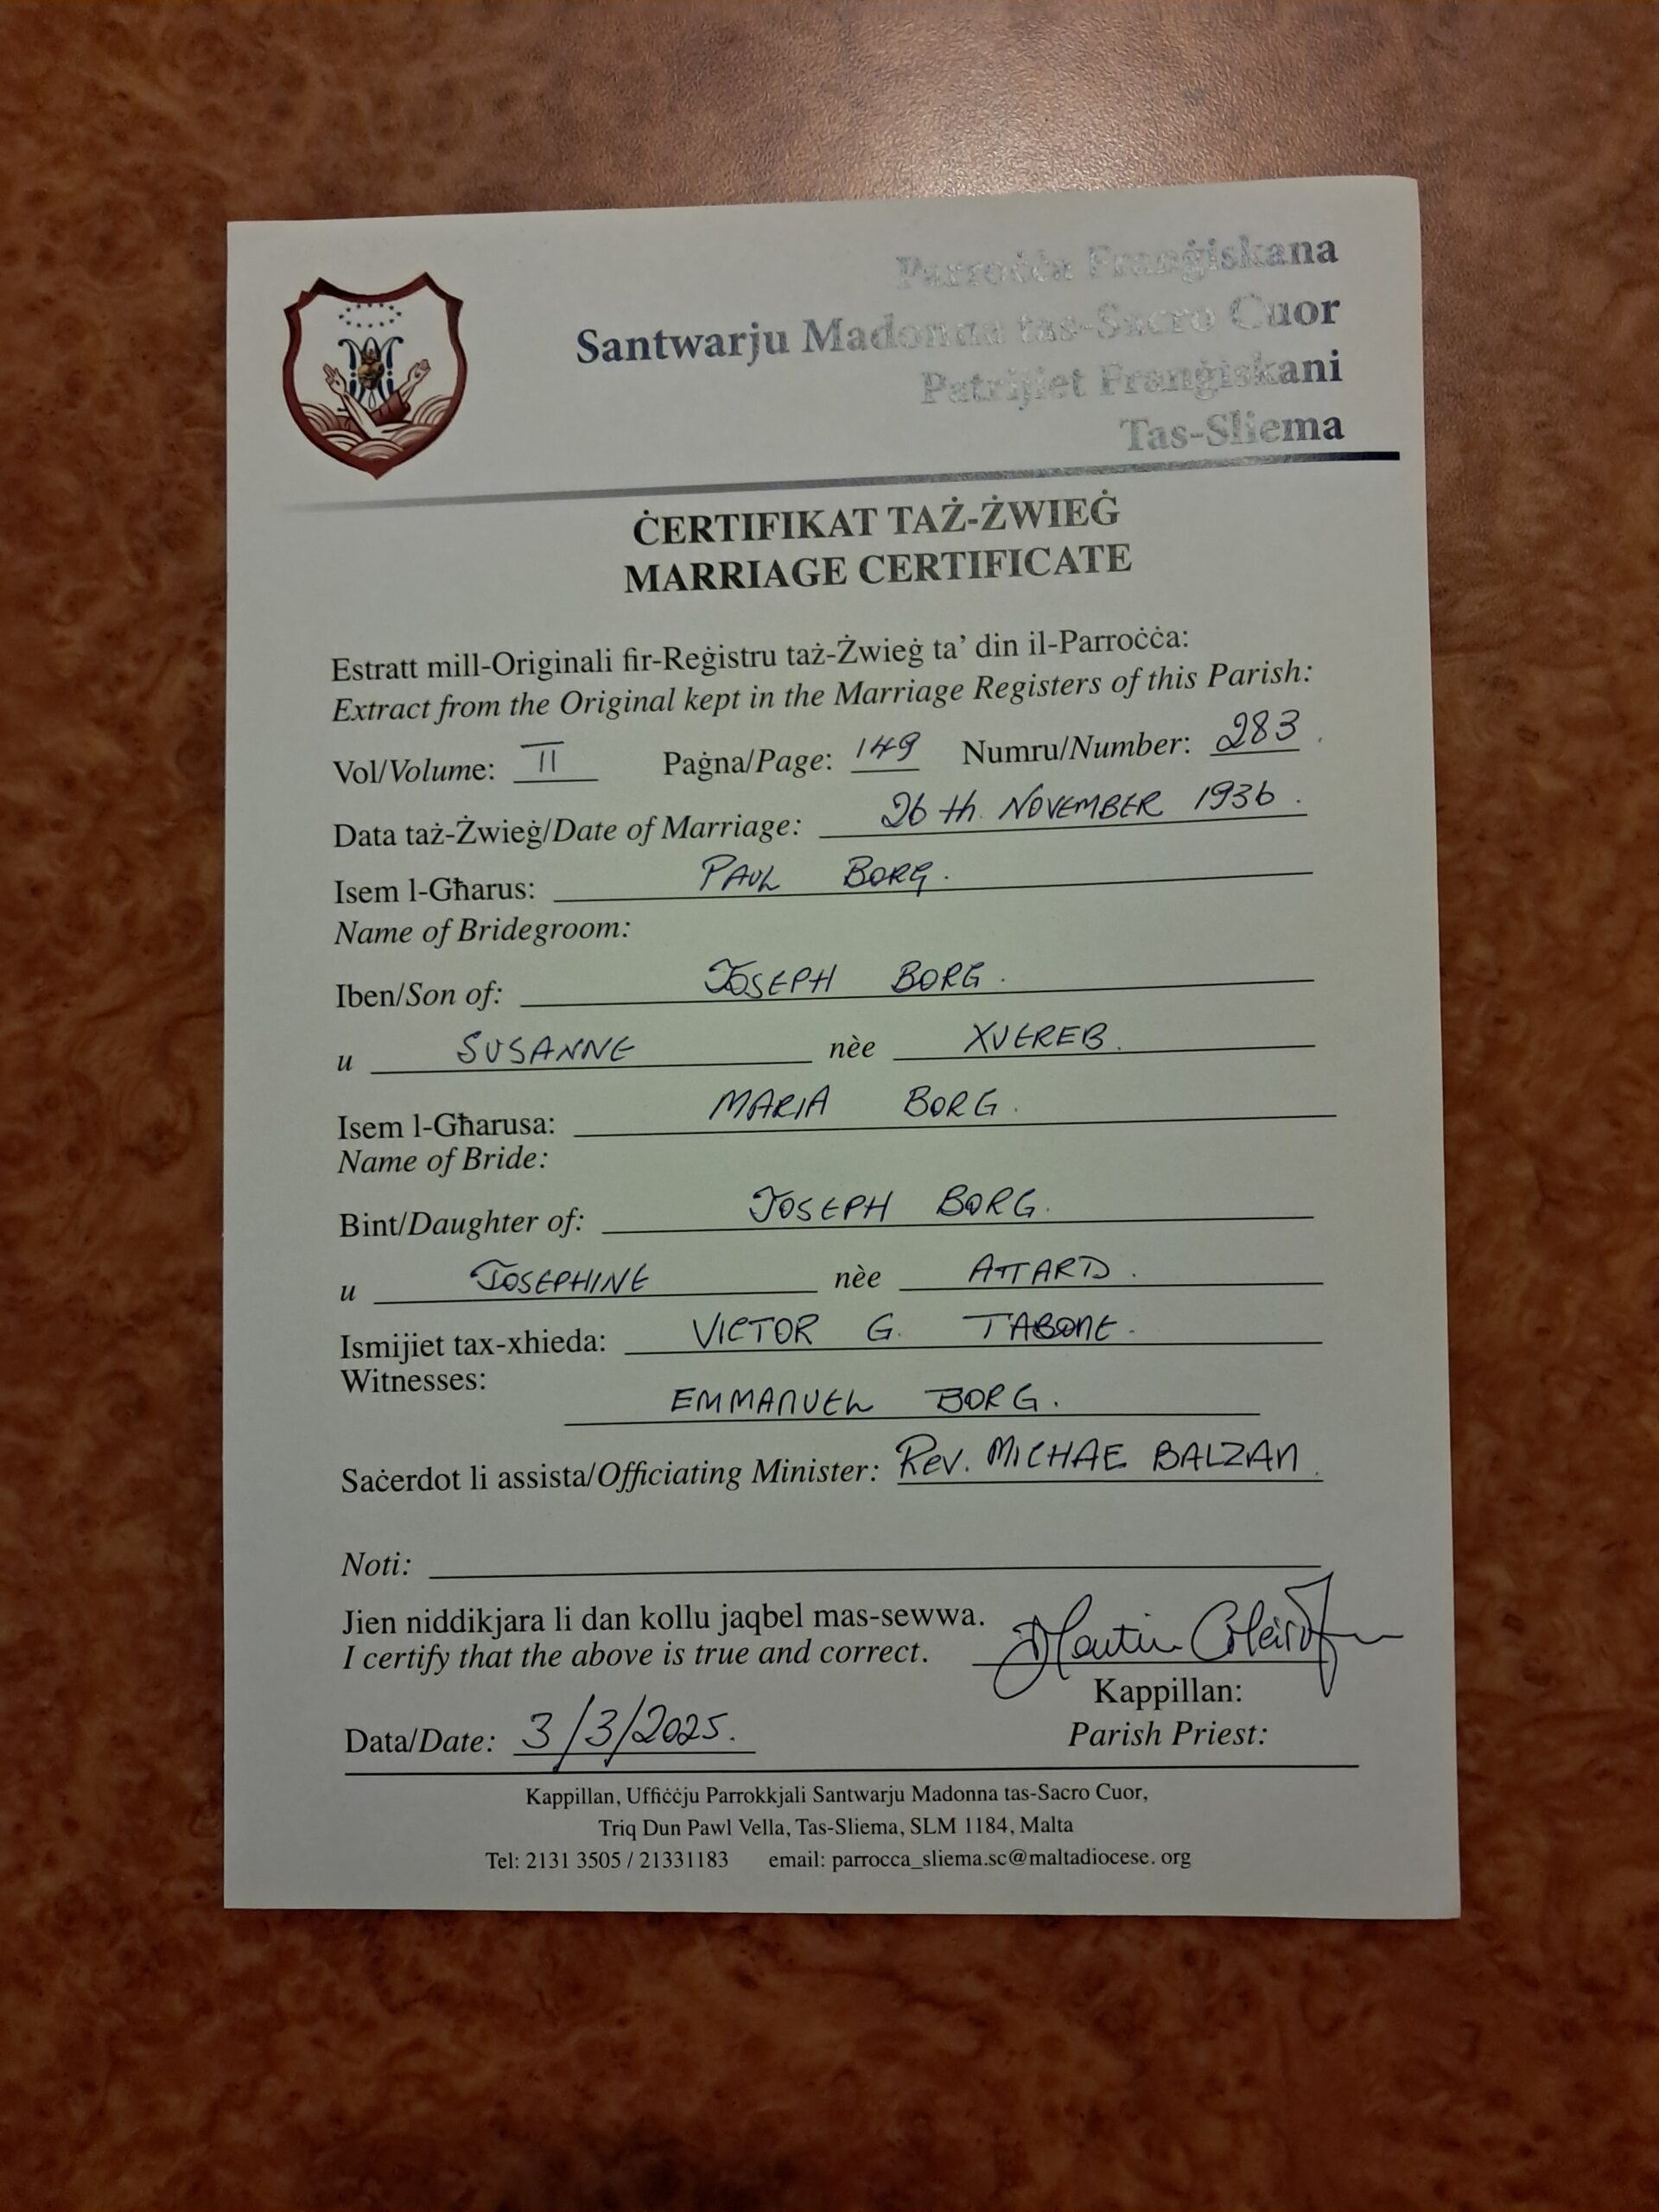 Parroċċa Franġiskana
Santwarju Madonna tas-Sacro Cuor
Patrijiet Franġiskani
Tas-Sliema
ĊERTIFIKAT TAŻ-ŻWIEĠ
MARRIAGE CERTIFICATE
Estratt mill-Originali fir-Reġistru taż-Żwieġ ta' din il-Parroċċa:
Extract from the Original kept in the Marriage Registers of this Parish:
Vol/Volume: II Paġna/Page: 149 Numru/Number: 283.
Data taż-Żwieġ/Date of Marriage: 26th. NOVEMBER 1936.
Isem l-Għarus: PAUL BORG.
Name of Bridegroom:
Iben/Son of: JOSEPH BORG.
u SUSANNE nèe XUEREB.
Isem l-Għarusa: MARIA BORG.
Name of Bride:
Bint/Daughter of: JOSEPH BORG.
u JOSEPHINE nèe ATTARD.
Ismijiet tax-xhieda: VICTOR G. TABONE.
Witnesses:
EMMANUEL BORG.
Saċerdot li assista/Officiating Minister: REV. MICHAE BALZAN.
Noti:
Jien niddikjara li dan kollu jaqbel mas-sewwa.
I certify that the above is true and correct.
Kappillan:
Data/Date: 3/3/2025.
Parish Priest:
Kappillan, Uffiċċju Parrokkjali Santwarju Madonna tas-Sacro Cuor,
Triq Dun Pawl Vella, Tas-Sliema, SLM 1184, Malta
Tel: 2131 3505 / 21331183 email: parrocca_sliema.sc@maltadiocese. org